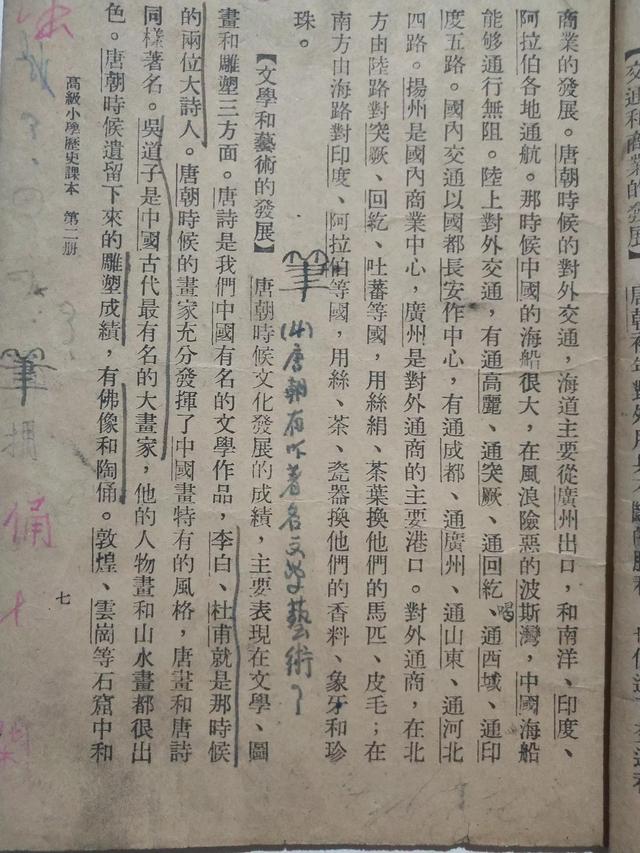 商業的發展。唐朝時候的對外交通，海道主要從廣州出口，和南洋、印度、
阿拉伯各地通航。那時候中國的海船很大，在風浪險惡的波斯灣，中國海船
能够通行無阻。陸上對外交通，有通高麗、通突厥、通回紇、通西域、通印
度五路。國內交通以國都長安作中心，有通成都、通廣州、通山東、通河北
四路。揚州是國內商業中心，廣州是對外通商的主要港口。對外通商，在北
方由陸路對突厥、回紇、吐蕃等國，用絲絹、茶葉換他們的馬匹、皮毛；在
南方由海路對印度、阿拉伯等國，用絲、茶、瓷器換他們的香料、象牙和珍
珠。
筆
(4)唐朝有什著名文學藝術？
【文學和藝術的發展】 唐朝時候文化發展的成績，主要表現在文學、圖
畫和雕塑三方面。唐詩是我們中國有名的文學作品，李白、杜甫就是那時候
的兩位大詩人。唐朝時候的畫家充分發揮了中國畫特有的風格，唐畫和唐詩
同樣著名。吳道子是中國古代最有名的大畫家，他的人物畫和山水畫都很出
色。唐朝時候遺留下來的雕塑成績，有佛像和陶俑。敦煌、雲崗等石窟中和
高級小學歷史課本 第二册
七
筆
俑